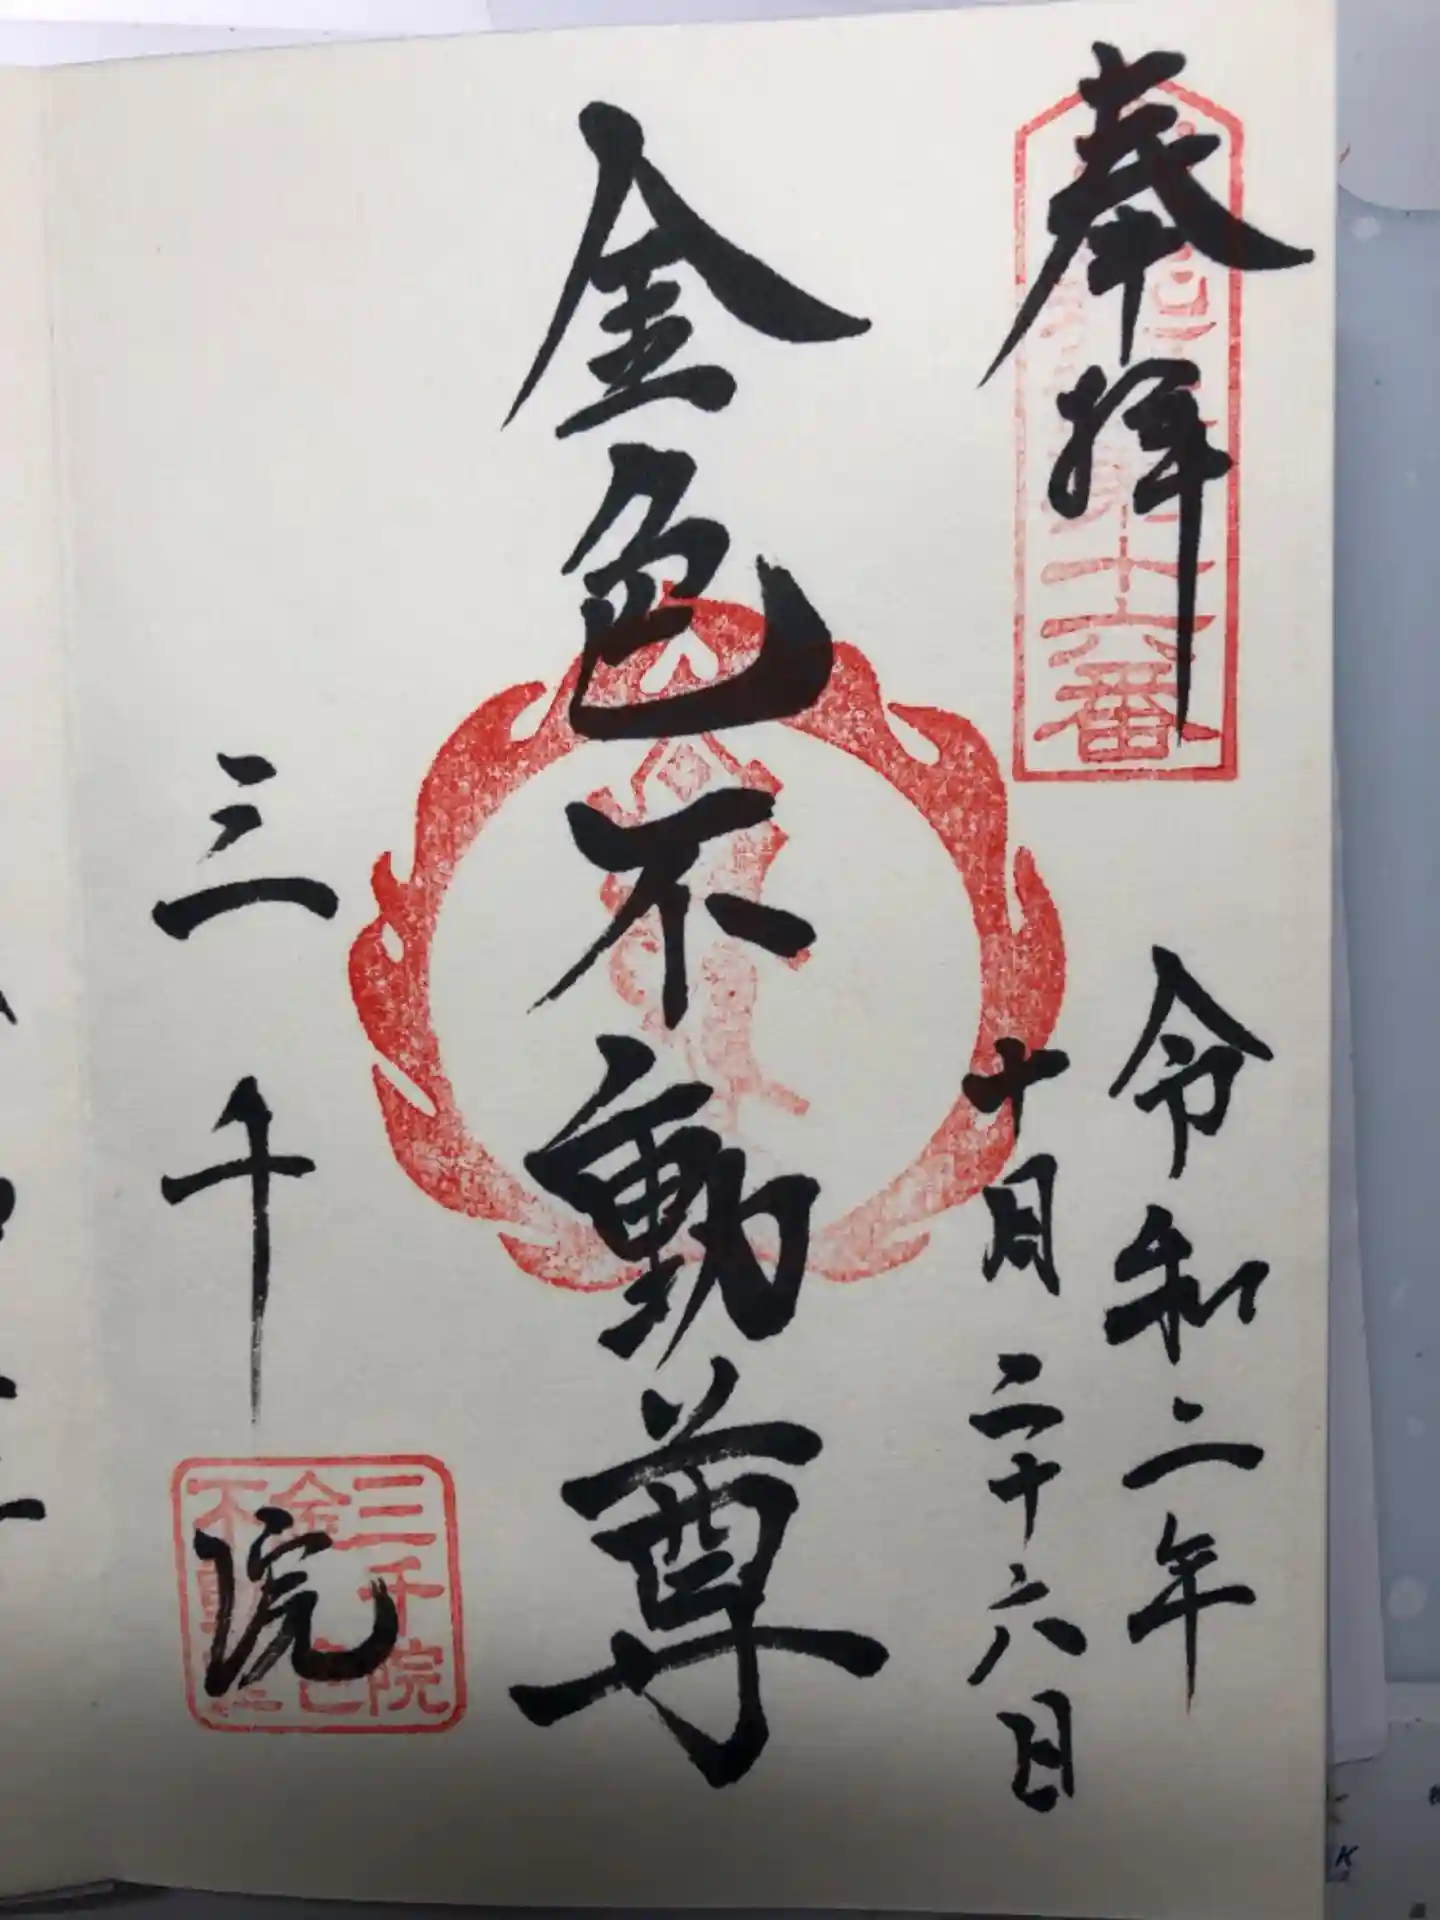 奉拝
十六番
令和二年
十月二十六日
金色不動尊
三千院
三千院
金色
不動